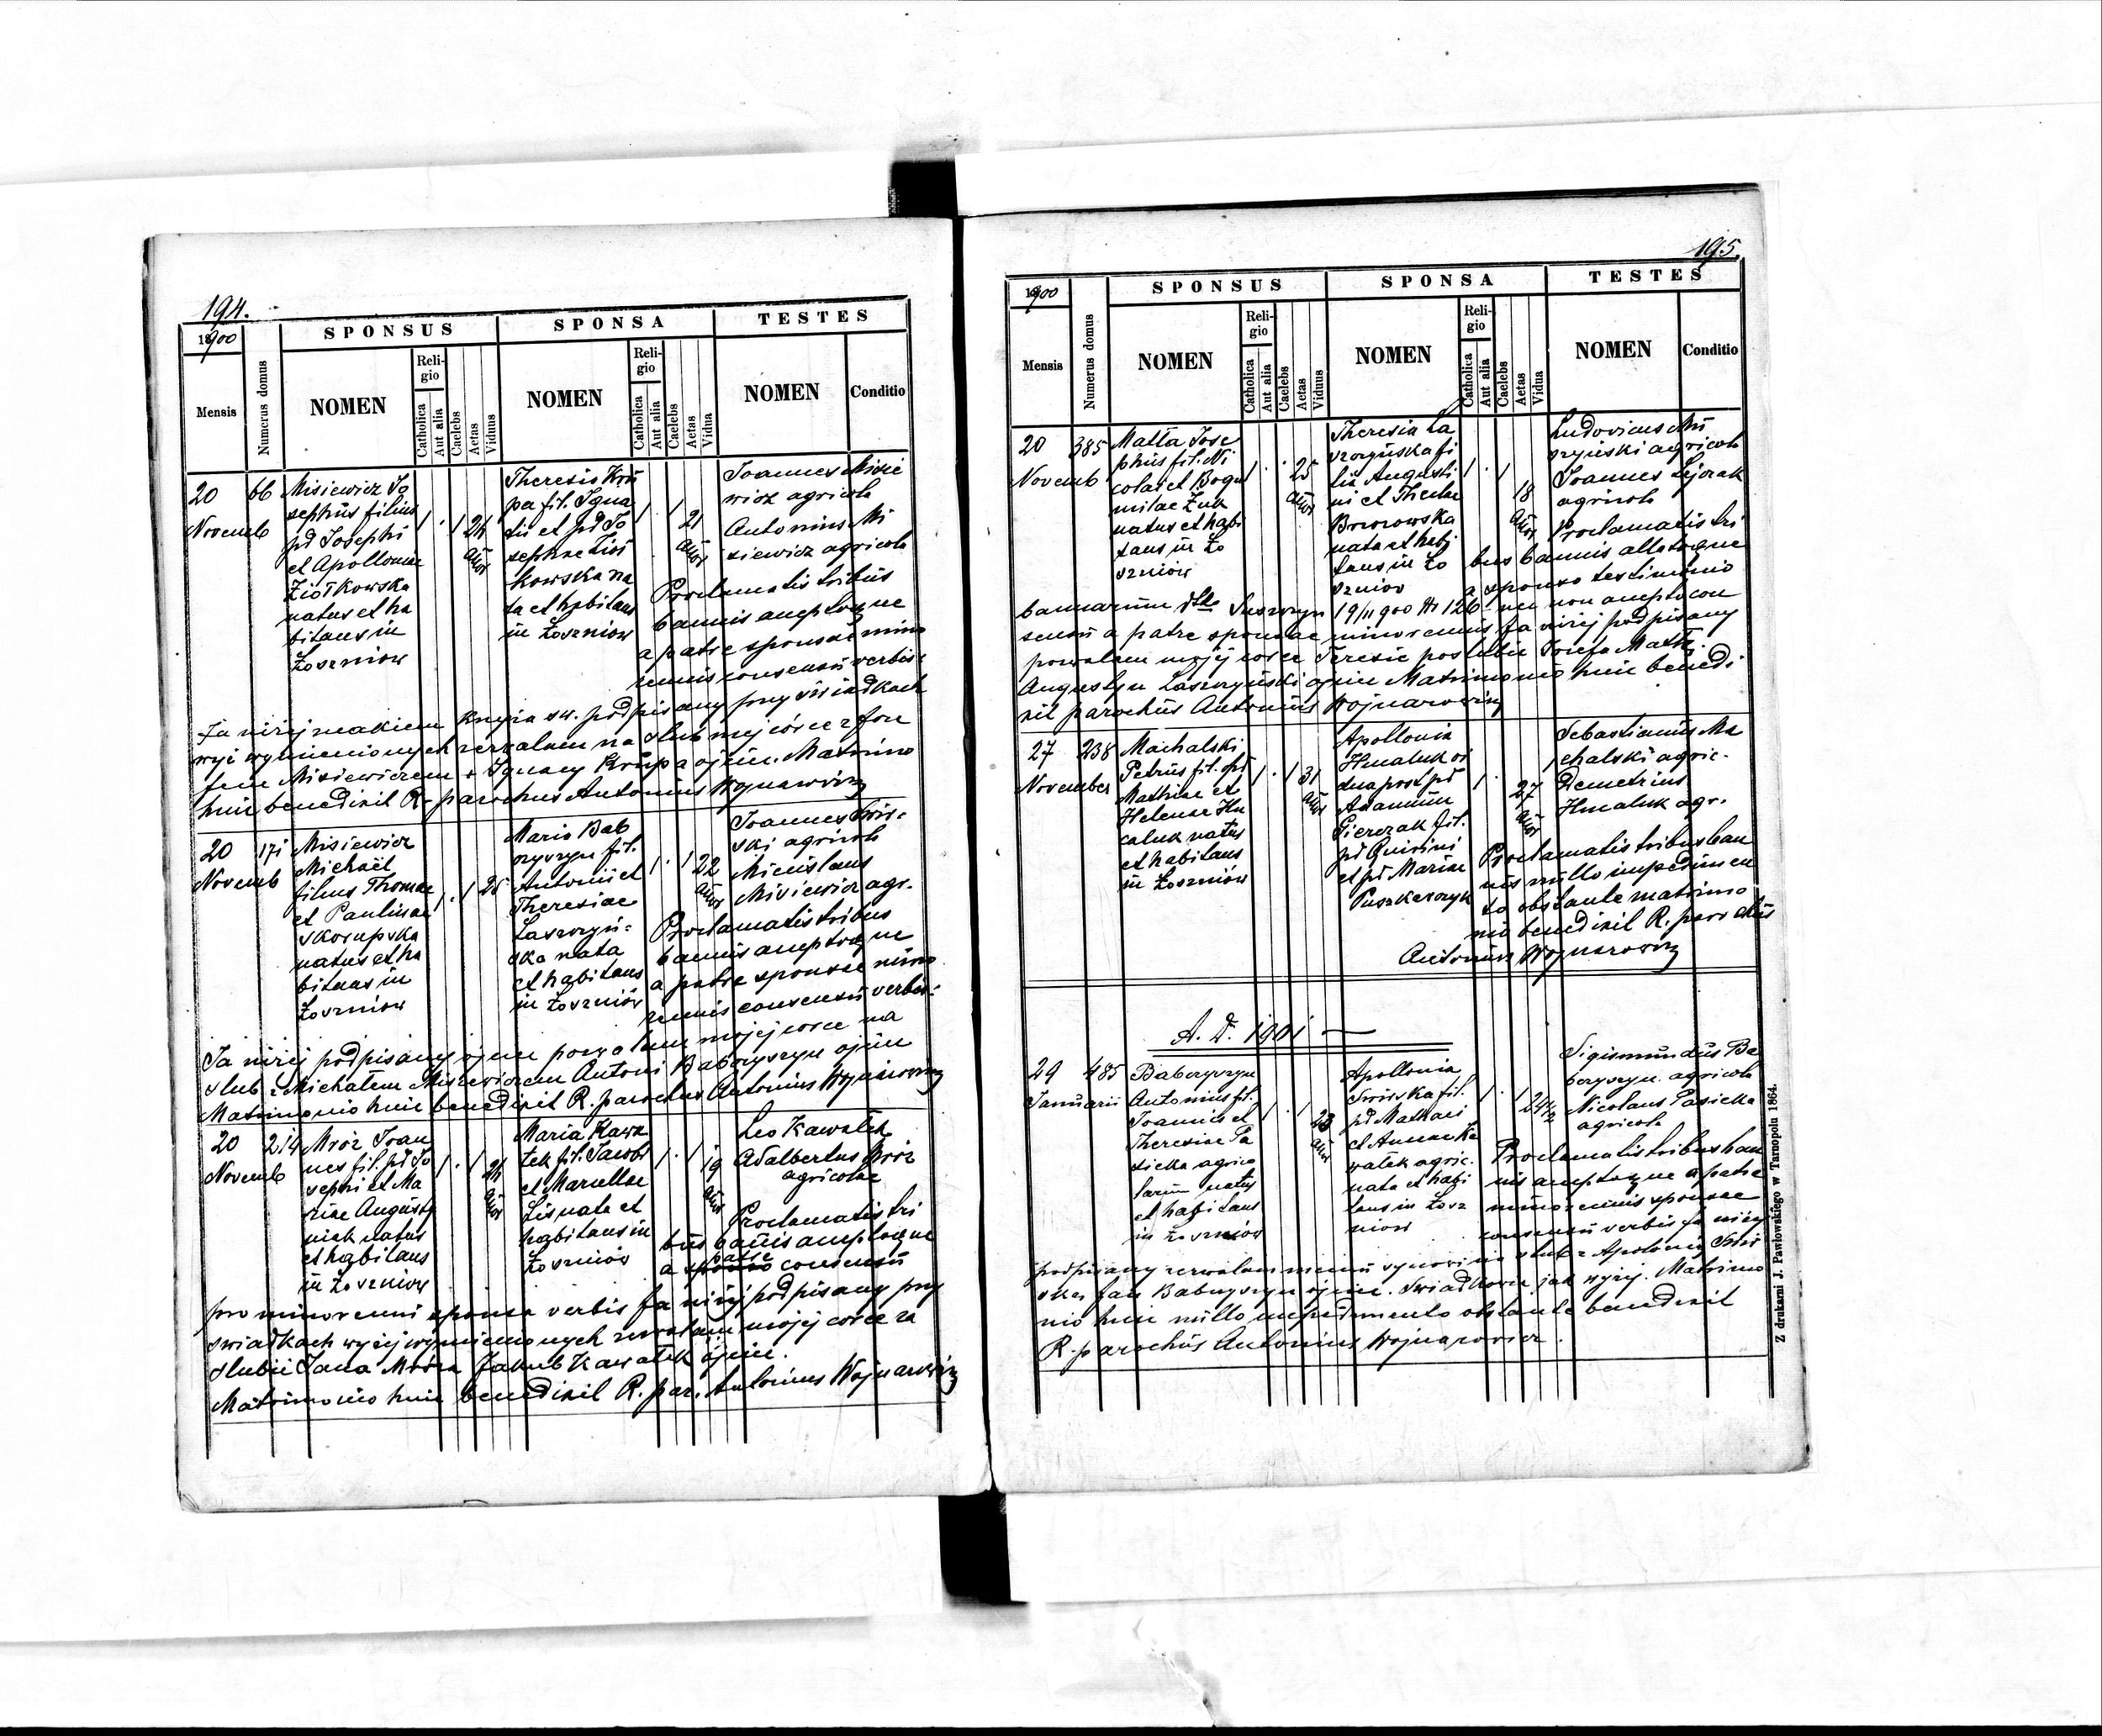 194.
1900
SPONSUS
SPONSA
TESTES
Mensis
Numerus domus
NOMEN
Religio
Catholica
Aut alia
Caelebs
Aetas
Viduus
NOMEN
Religio
Catholica
Aut alia
Caelebs
Aetas
Vidua
NOMEN
Conditio
20
Novemb
66
Misiewicz Jo
sephus filius
pd Josephi
et Apolloniae
Ziołkowska
natus et ha
bitans in
Łoszniow
1 . 1 24
Theresia Kru
pa fil. Igna
tii et pd Jo
sephae
kowska na
ta et habitans
in Łoszniow
1 . 1 21
Joannes Misie
wicz agricola
Antonius Mi
siewicz agricola
Proclamatis tribus
bannis acceptoque
a patre sponsae mino
rennis consensu verbis:
Ja niżej znakiem krzyża św. podpisany przy świadkach
wyż wymienionych zezwalam na ślub mej córce z Józe
fem Misiewiczem + Ignacy Krupa ojciec. Matrimo
nio huic benedixit R. parochus Antonius Wojnarowicz
20
Novemb
171
Misiewicz
Michael
filius Thomae
et Paulinae
Skorupska
natus et ha
bitans in
Łoszniow
1 . 1 25
Maria Bab
czyszyn fil.
Antonii et
Theresiae
Laszczyń=
ska nata
et habitans
in Łoszniów
1 . 1 22
Joannes Świr=
ski agricola
Nicolaus
Misiewicz agr.
Proclamatis tribus
bannis acceptoque
a patre sponsae mino
rennis consensu verbis:
Ja niżej podpisany ojciec pozwalam mojej corce na
ślub z Michałem Misiewiczem Antoni Babczyszyn ojciec
Matrimonio huic benedixit R. parochus Antonius Wojnarowicz
20
Novemb
214
Mróz Joan
nes fil. pd Jo
sephi et Ma
riae Augusty
niak natus
et habitans
in Łoszniow
1 . 1 24
Maria Kawa
łek fil. Jacobi
et Marcellae
Lis nata et
habitans in
Łoszniów
1 . 1 19
Leo Kawałek
Adalbertus Mróz
agricolae
Proclamatis tri
bus bannis acceptoque
a patre consensu
pro minorenni sponsa verbis Ja niżej podpisany przy
świadkach wyżej wymienionych zezwalam mojej corce za
ślubić Jana Mroza Jakub Kawałek ojciec.
Matrimonio huic benedixit R. par. Antonius Wojnarowicz
195.
1900
SPONSUS
SPONSA
TESTES
Mensis
Numerus domus
NOMEN
Religio
Catholica
Aut alia
Caelebs
Aetas
Viduus
NOMEN
Religio
Catholica
Aut alia
Caelebs
Aetas
Vidua
NOMEN
Conditio
20
Novemb
385
Matła Jose
phus fil. Ni
colai et Bogu
milae Żuk
natus et habi
tans in Ło
szniów
1 . 25
Theresia La
szczyńska fi
lia Augusti
ni et Theclae
Borsowska
nata et habi
tans in Ło
szniow
1 . 1 18
Ludovicus
szyński agricola
Joannes
agricola
Proclamatis tri
bus bannis allatoque
a sponso testimonio
bannorum dtto 19/11 900 N 126 nec non accepto con
sensu a patre sponsae minorennis Ja niżej podpisany
pozwalam mojej corce Teresie poślubić Józefa Matłę.
Augustyn Laszczyński ojciec Matrimonio huic benedi
xit parochus Antonius Wojnarowicz
27
November
238
Machalski
Petrus fil. pd
Mathiae et
Helenae Hu
caluk natus
et habitans
in Łoszniów
1 . 1 31
Apollonia
Hucaluk vi
dua post pd
Adamum
Gierczak fil.
pd Quirini
et pd Mariae
Puszkarczyk
1 . 27
1
Sebastianus Ma
chalski agric.
Demetrius
Hucaluk agr.
Proclamatis tribus ban
nis nullo impedimen
to obstante matrimo
nio benedixit R. parochus
Antonius Wojnarowicz
A. D. 1901
29
Januarii
485
Babczyszyn
Antonius fil.
Joannis et
Theresiae Pa
sieka agrico
larum natus
et habitans
in Łoszniów
1 . 1 23
Apollonia
Świrska fil.
pd Mathaei
et Annae Ka
wałek agric.
nata et habi
tans in Łosz
niow
1 . 1
Sigismundus Ba
bczyszyn agricola
Nicolaus Pasieka
agricola
Proclamatis tribus ban
nis acceptoque a patre
minorennis sponsae
consensu verbis Ja niżej
podpisany zezwalam memu synowi na ślub z Apolonią Świr
ską Jan Babczyszyn ojciec. Świadkowie jak wyżej. Matrimo
nio huic nullo impedimento obstante benedixit
R. parochus Antonius Wojnarowicz.
Z drukarni J. Pawłowskiego w Tarnopolu 1864.